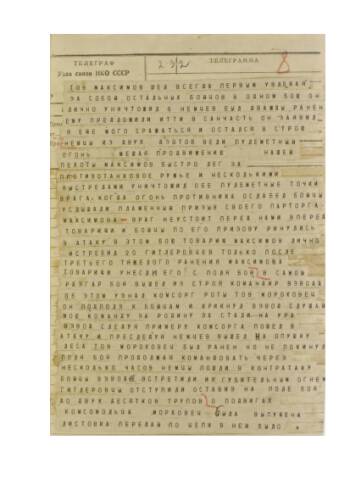 ТЕЛЕГРАФ
Узла связи НКО СССР
232
ТЕЛЕГРАММА
8
ТОВ МАКСИМОВ ШЕЛ ВСЕГДА ПЕРВЫМ УВЛЕКАЯ
ЗА СОБОЙ ОСТАЛЬНЫХ БОЙЦОВ В ОДНОМ БОЮ ОН
ЛИЧНО УНИЧТОЖИЛ 8 НЕМЦЕВ БЫЛ ДВАЖДЫ РАНЕН
ЕМУ ПРЕДЛОЖИЛИ ИТТИ В САНЧАСТЬ ОН ЗАЯВИЛ
Я ЕЩЕ МОГУ СРАЖАТЬСЯ И ОСТАЛСЯ В СТРОЮ
НЕМЦЫ ИЗ ДВУХ ДЗОТОВ ВЕЛИ ПУЛЕМЕТНЫЙ
ОГОНЬ МЕШАЯ ПРОДВИЖЕНИЮ НАШЕЙ
ПЕХОТЫ МАКСИМОВ БЫСТРО ЛЕГ ЗА
ПРОТИВОТАНКОВОЕ РУЖЬЕ И НЕСКОЛЬКИМИ
ВЫСТРЕЛАМИ УНИЧТОЖИЛ ОБЕ ПУЛЕМЕТНЫЕ ТОЧКИ
ВРАГА КОГДА ОГОНЬ ПРОТИВНИКА ОСЛАБЕЛ БОЙЦЫ
УСЛЫШАЛИ ПЛАМЕННЫЙ ПРИЗЫВ СВОЕГО ПАРТОРГА
МАКСИМОВА ВРАГ НЕУСТОИТ ПЕРЕД НАМИ ВПЕРЕД
ТОВАРИЩИ И БОЙЦЫ ПО ЕГО ПРИЗЫВУ РИНУЛИСЬ
В АТАКУ В ЭТОМ БОЮ ТОВАРИЩ МАКСИМОВ ЛИЧНО
ИСТРЕБИЛ 20 ГИТЛЕРОВЦЕВ ТОЛЬКО ПОСЛЕ
ТРЕТЬЕГО ТЯЖЕЛОГО РАНЕНИЯ МАКСИМОВА
ТОВАРИЩИ УНЕСЛИ ЕГО С ПОЛЯ БОЯ В САМЫЙ
РАЗГАР БОЯ ВЫШЕЛ ИЗ СТРОЯ КОМАНДИР ВЗВОДА
ОБ ЭТОМ УЗНАЛ КОМСОРГ РОТЫ ТОВ МОРКОВЕН
ОН ПОДПОЛЗ К БОЙЦАМ И КРИКНУЛ ВЗВОД СЛУШАЙ
МОЮ КОМАНДУ ЗА РОДИНУ ЗА СТАЛИНА УРА
ВЗВОД СЛЕДУЯ ПРИМЕРУ КОМСОРГА ПОШЕЛ В
АТАКУ И ПРЕСЛЕДУЯ НЕМЦЕВ ВЫШЕЛ НА ОПУШКУ
ЛЕСА ТОВ МОРКОВЕН БЫЛ РАНЕН НО НЕ ПОКИНУЛ
ПОЛЯ БОЯ ПРОДОЛЖАЯ КОМАНДОВАТЬ ЧЕРЕЗ
НЕСКОЛЬКО ЧАСОВ НЕМЦЫ ПОШЛИ В КОНТРАТАКУ
БОЙЦЫ ВЗВОДА ВСТРЕТИЛИ ИХ ГУБИТЕЛЬНЫМ ОГНЕМ
ГИТЛЕРОВЦЫ ОТСТУПИЛИ ОСТАВИВ НА ПОЛЕ БОЯ
ДО ДВУХ ДЕСЯТКОВ ТРУПОВ О ПОДВИГАХ
КОМСОМОЛЬЦА МОРКОВЕН БЫЛА ВЫПУЩЕНА
ЛИСТОВКА ПЕРЕДАЙ ПО ЦЕПИ В НЕЙ БЫЛО